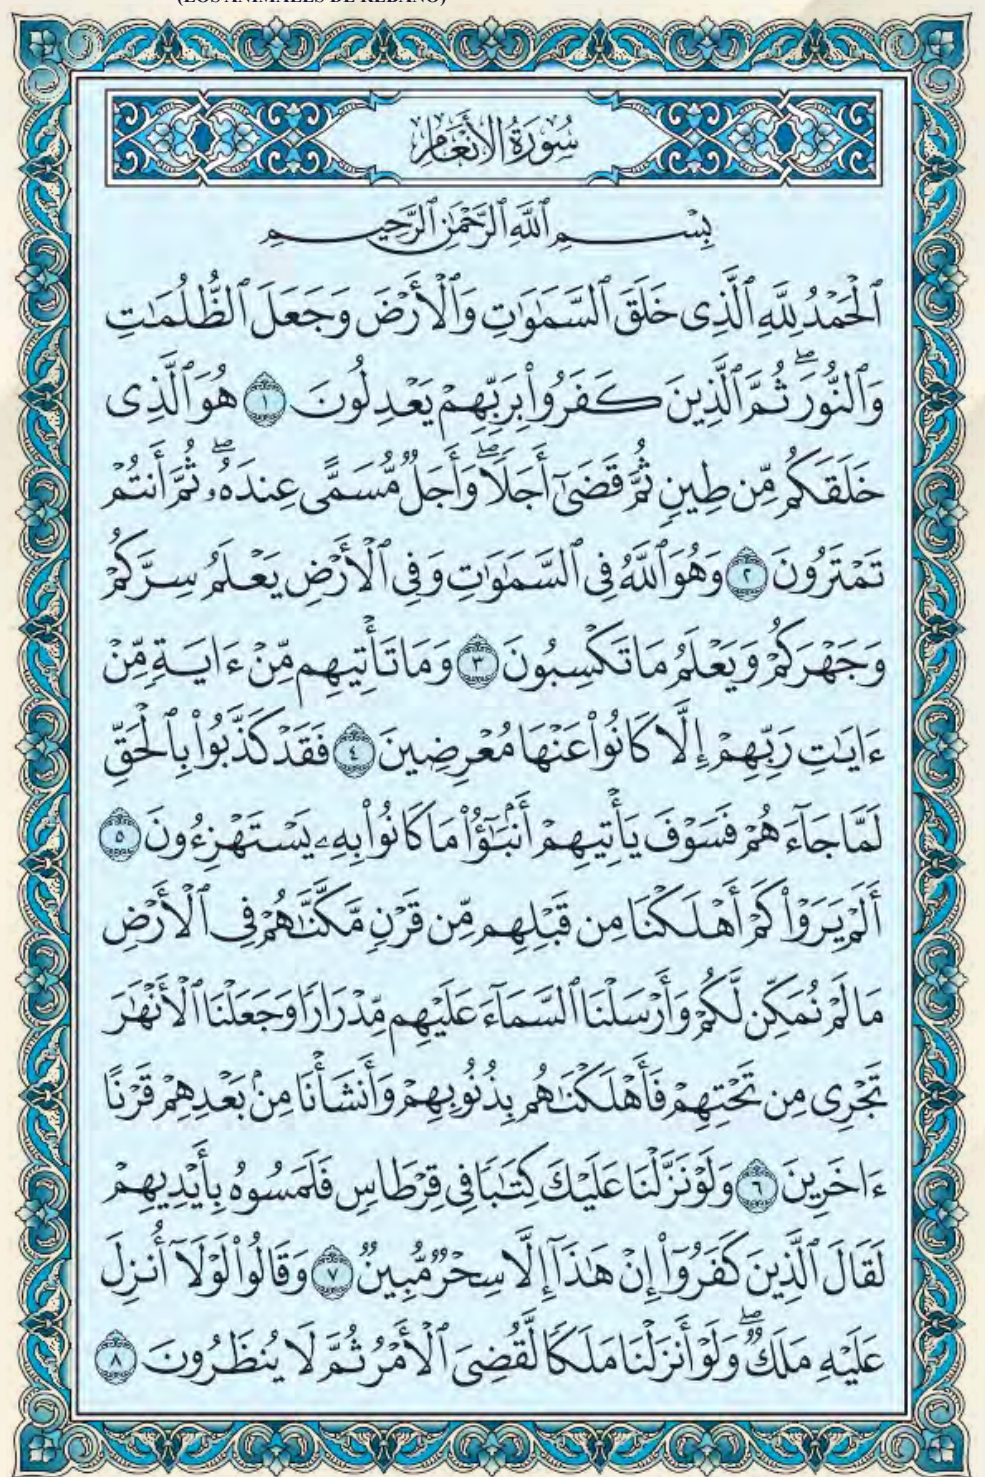 (LOS ANIMALES DE REBAÑO)
سُورَةُ الأَنْعَامِ
بِسْمِ ٱللَّهِ ٱلرَّحْمَٰنِ ٱلرَّحِيمِ
ٱلْحَمْدُ لِلَّهِ ٱلَّذِى خَلَقَ ٱلسَّمَٰوَٰتِ وَٱلْأَرْضَ وَجَعَلَ ٱلظُّلُمَٰتِ
وَٱلنُّورَ ۖ ثُمَّ ٱلَّذِينَ كَفَرُوا۟ بِرَبِّهِمْ يَعْدِلُونَ ١ هُوَ ٱلَّذِى
خَلَقَكُم مِّن طِينٍ ثُمَّ قَضَىٰٓ أَجَلًا ۖ وَأَجَلٌ مُّسَمًّى عِندَهُۥ ۖ ثُمَّ أَنتُمْ
تَمْتَرُونَ ٢ وَهُوَ ٱللَّهُ فِى ٱلسَّمَٰوَٰتِ وَفِى ٱلْأَرْضِ يَعْلَمُ سِرَّكُمْ
وَجَهْرَكُمْ وَيَعْلَمُ مَا تَكْسِبُونَ ٣ وَمَا تَأْتِيهِم مِّنْ ءَايَةٍ مِّنْ
ءَايَٰتِ رَبِّهِمْ إِلَّا كَانُوا۟ عَنْهَا مُعْرِضِينَ ٤ فَقَدْ كَذَّبُوا۟ بِٱلْحَقِّ
لَمَّا جَآءَهُمْ فَسَوْفَ يَأْتِيهِمْ أَنۢبَٰٓؤُا۟ مَا كَانُوا۟ بِهِۦ يَسْتَهْزِءُونَ ٥
أَلَمْ يَرَوْا۟ كَمْ أَهْلَكْنَا مِن قَبْلِهِم مِّن قَرْنٍ مَّكَّنَّٰهُمْ فِى ٱلْأَرْضِ
مَا لَمْ نُمَكِّن لَّكُمْ وَأَرْسَلْنَا ٱلسَّمَآءَ عَلَيْهِم مِّدْرَارًا وَجَعَلْنَا ٱلْأَنْهَٰرَ
تَجْرِى مِن تَحْتِهِمْ فَأَهْلَكْنَٰهُم بِذُنُوبِهِمْ وَأَنشَأْنَا مِنۢ بَعْدِهِمْ قَرْنًا
ءَاخَرِينَ ٦ وَلَوْ نَزَّلْنَا عَلَيْكَ كِتَٰبًا فِى قِرْطَاسٍ فَلَمَسُوهُ بِأَيْدِيهِمْ
لَقَالَ ٱلَّذِينَ كَفَرُوٓا۟ إِنْ هَٰذَآ إِلَّا سِحْرٌ مُّبِينٌ ٧ وَقَالُوا۟ لَوْلَآ أُنزِلَ
عَلَيْهِ مَلَكٌ ۖ وَلَوْ أَنزَلْنَا مَلَكًا لَّقُضِىَ ٱلْأَمْرُ ثُمَّ لَا يُنظَرُونَ ٨